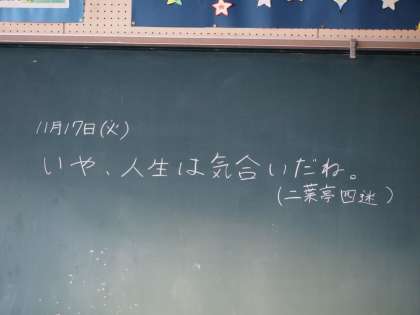 11月17日(火)
いや、人生は気合いだね。
(二葉亭四迷)